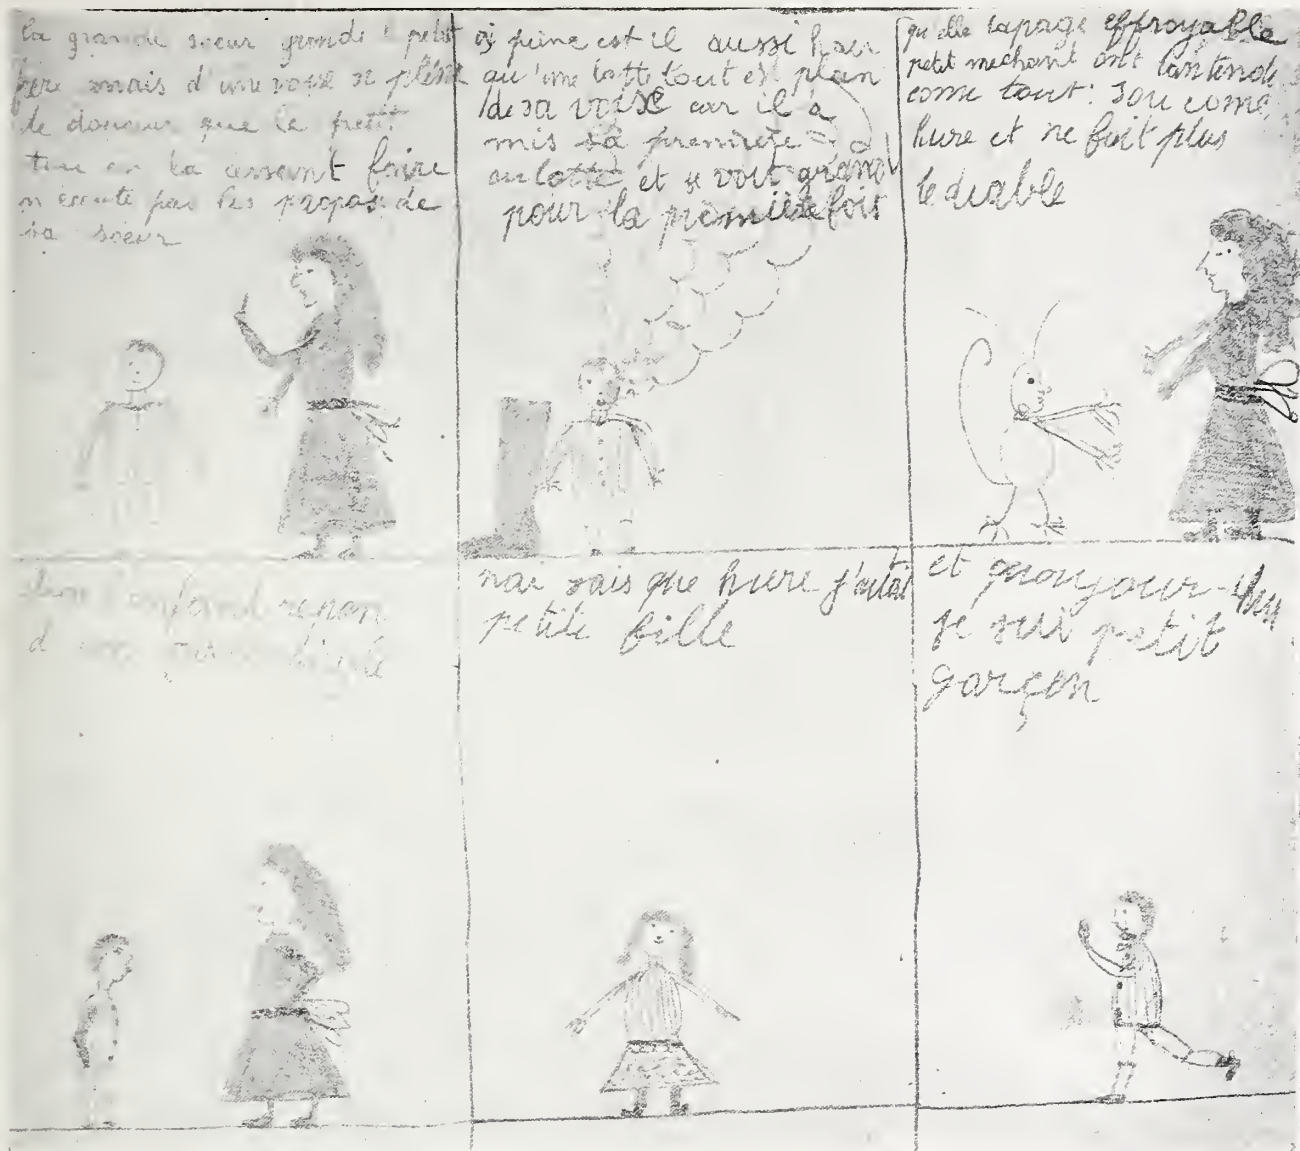 la grande soeur gronde petit
frere mais d'une voise si pleine
de douceur que le petit
en la laissant faire
n ecoute pas les propos de
sa soeur
a peine est il aussi haur
qu'une botte tout est plein
de sa voise car il à
mis sa premiere
culotte et se voit grand
pour la premiere fois
qu'elle tapage effroyable
petit mechant ont l'antend
come tout: sou come
hure et ne fait plus
le diable
l'enfand repon
d
nai sais que hure j'aitai
petite fille
et quoujour-
je sui petit
garçon